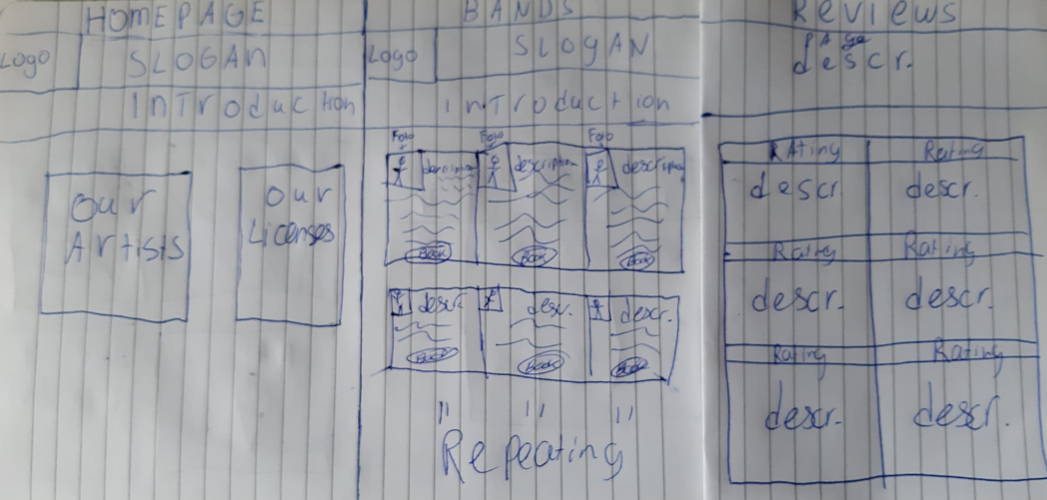 HOMEPAGE
Logo
SLOGAN
INTroducTion
Our
Artists
Our
Licenses
BANDS
Logo
SLOGAN
InTroduction
Foto
Foto
Foto
description
description
Book
Book
Book
descr.
descr.
descr.
Book
Book
Book
" " "
Repeating
Reviews
PAge
descr.
RATing
Rating
descr.
descr.
Rating
Rating
descr.
descr.
Rating
Rating
descr.
descr.